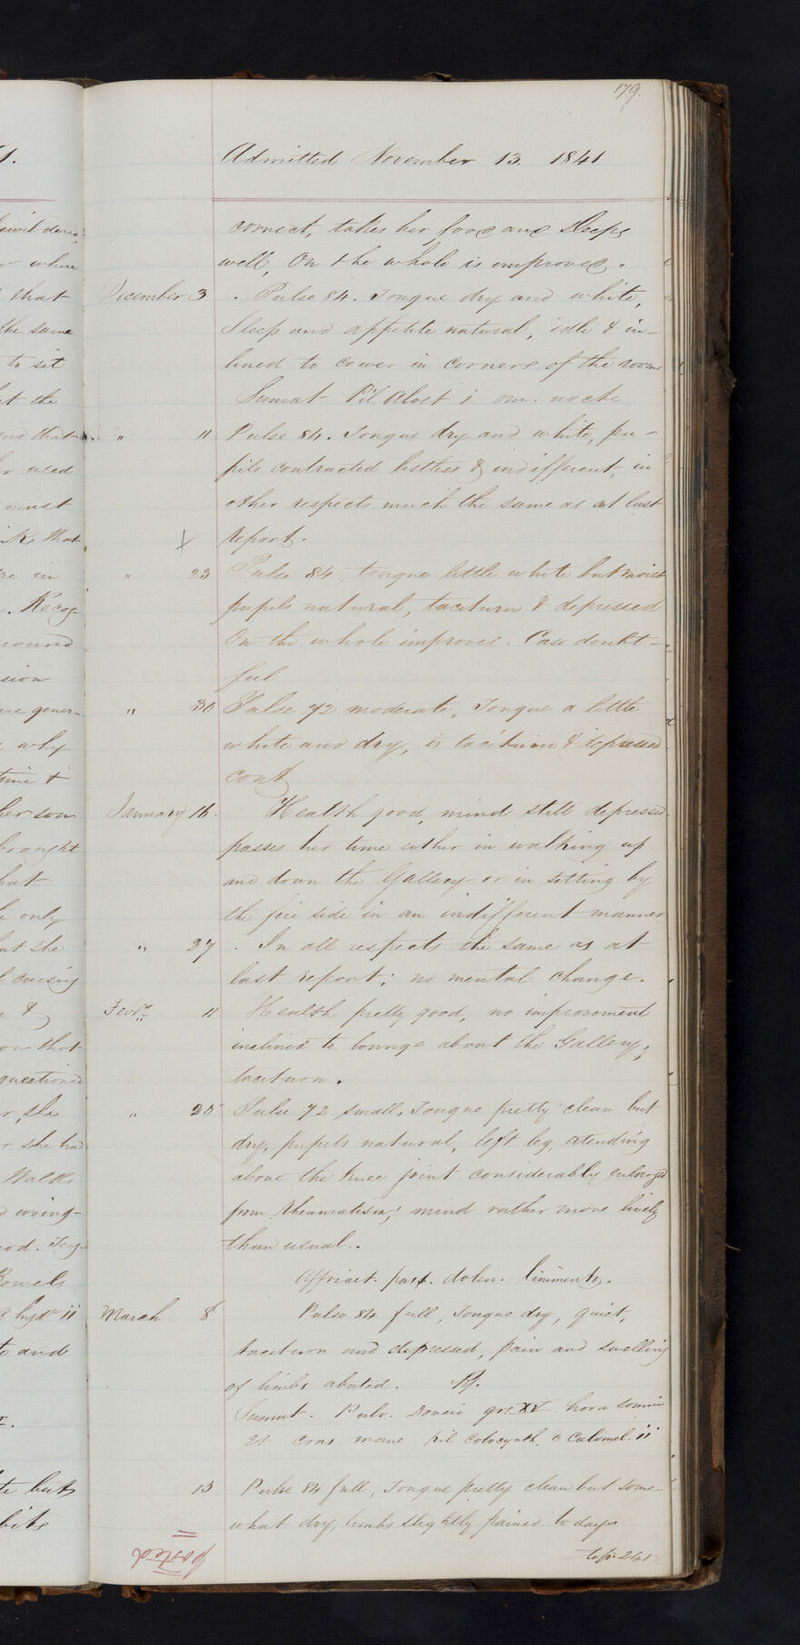 179.
Admitted November 13. 1841
correct, takes her food and sleeps
well, On the whole is improved.
December 3 . Pulse 84. Tongue dry and white,
Sleep and appetite natural, idle & in-
clined to cower in corners of the room
Sumat Pil Aloet i om. nocte
" 11 Pulse 84. Tongue dry and white, pu-
pils contracted listless & indifferent, in
other respects much the same as at last
report.
" 23 Pulse 84, tongue little white but moist
pupils natural, taciturn & depressed
On the whole improves. Case doubt-
ful
" 30 Pulse 72 moderate, Tongue a little
white and dry, is taciturn & depressed
cont
January 16. Health good, mind still depressed
passes her time either in walking up
and down the Gallery or in sitting by
the fire side in an indifferent manner
" 27 . In all respects the same as at
last report; no mental change.
Febry. 11 Health pretty good, no improvement
inclined to lounge about the Gallery;
taciturn.
" 25 Pulse 72 small, Tongue pretty clean but
dry, pupils natural, left leg, atending
above the knee joint considerably enlarged
from rheumatism; mind rather more lively
than usual.
Affricet. part. dolen. liniment.
March 8 Pulse 84 full, Tongue dry, quiet,
taciturn and depressed, pain and swelling
of limbs abated. R.
Sumat. Pulv. Doveri grs XV hora somni
et cras mane pil Colocynth. c Calomel. ii
13 Pulse 84 full, Tongue pretty clean but some-
what dry, limbs slightly pained to day
posted
to p. 241